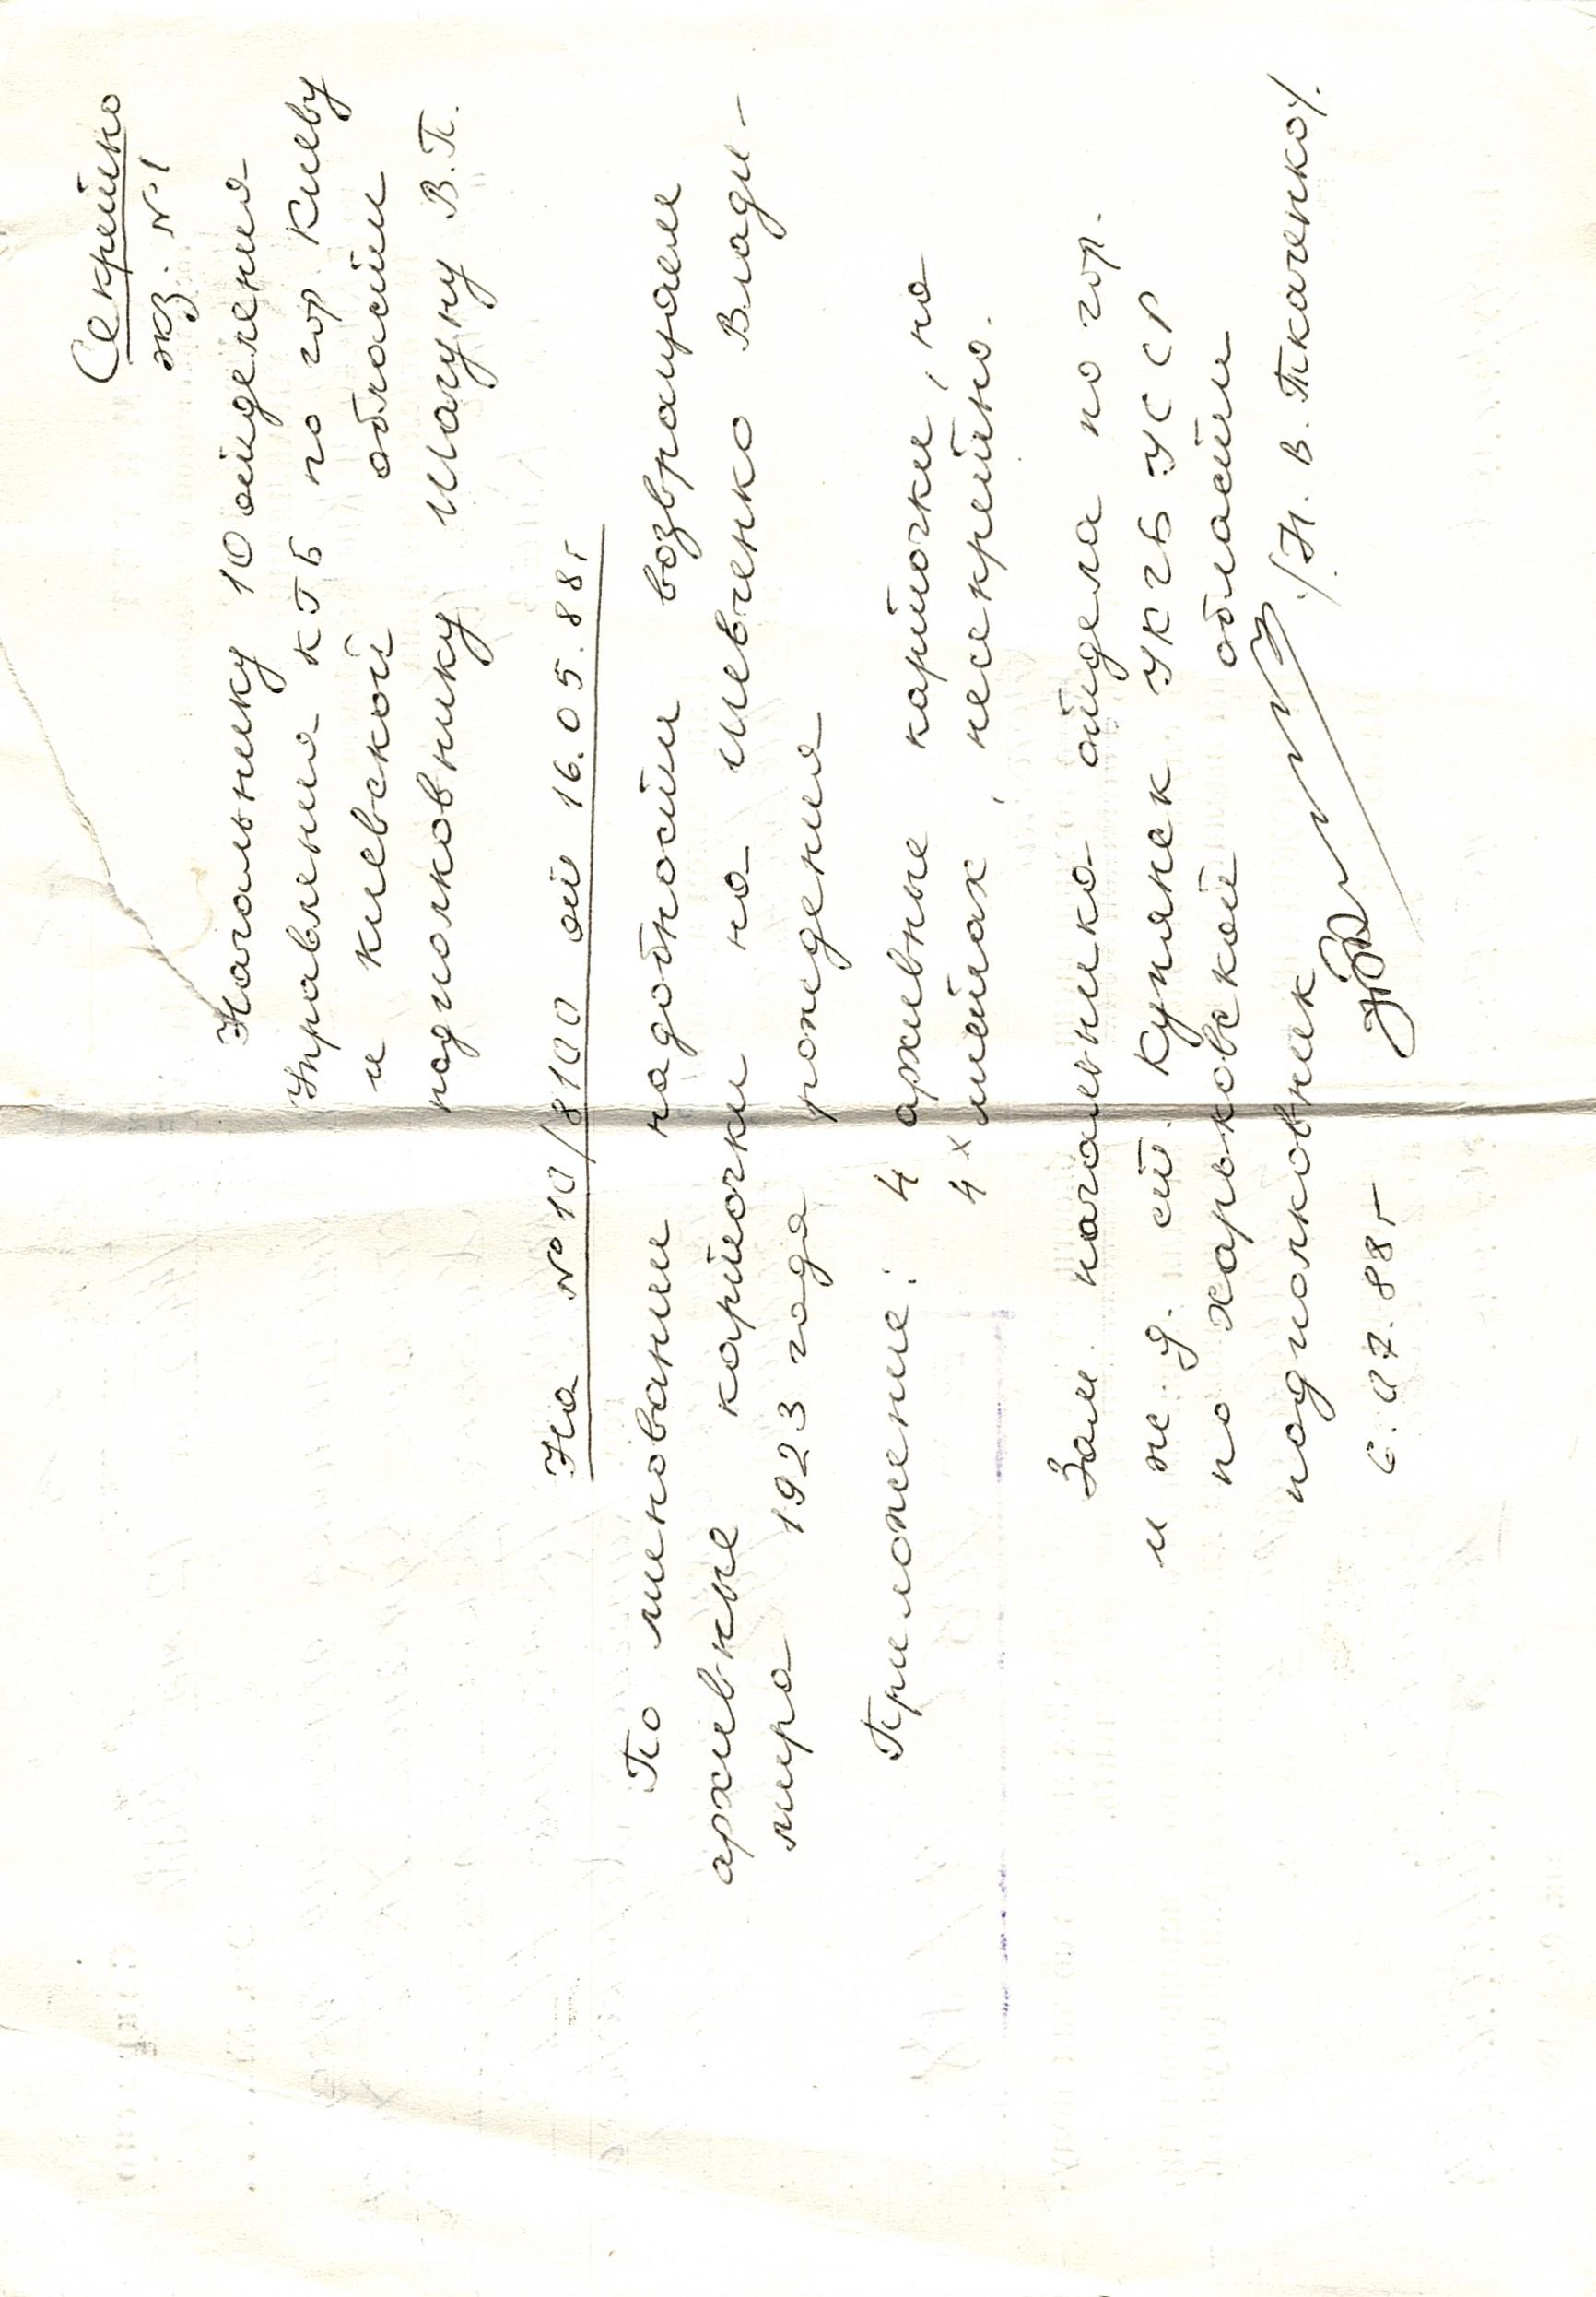 Секретно
экз. №1
Начальнику 10 отделения
Управления КГБ по гор Киеву
и Киевской области
подполковнику Шагуну В.П.
На №10/8100 от 16.05.88г
По миновании надобности возвращаем
архивные карточки на Шевченко Влади-
мира 1923 года рождения
Приложение: 4 архивные карточки, на
4х листах, несекретно.
Зам. начальника отдела по гор.
и ж.д. ст. Купянск УКГБ УССР
по Харьковской области
подполковник /Н.В. Ткаченко/.
6.07.88г